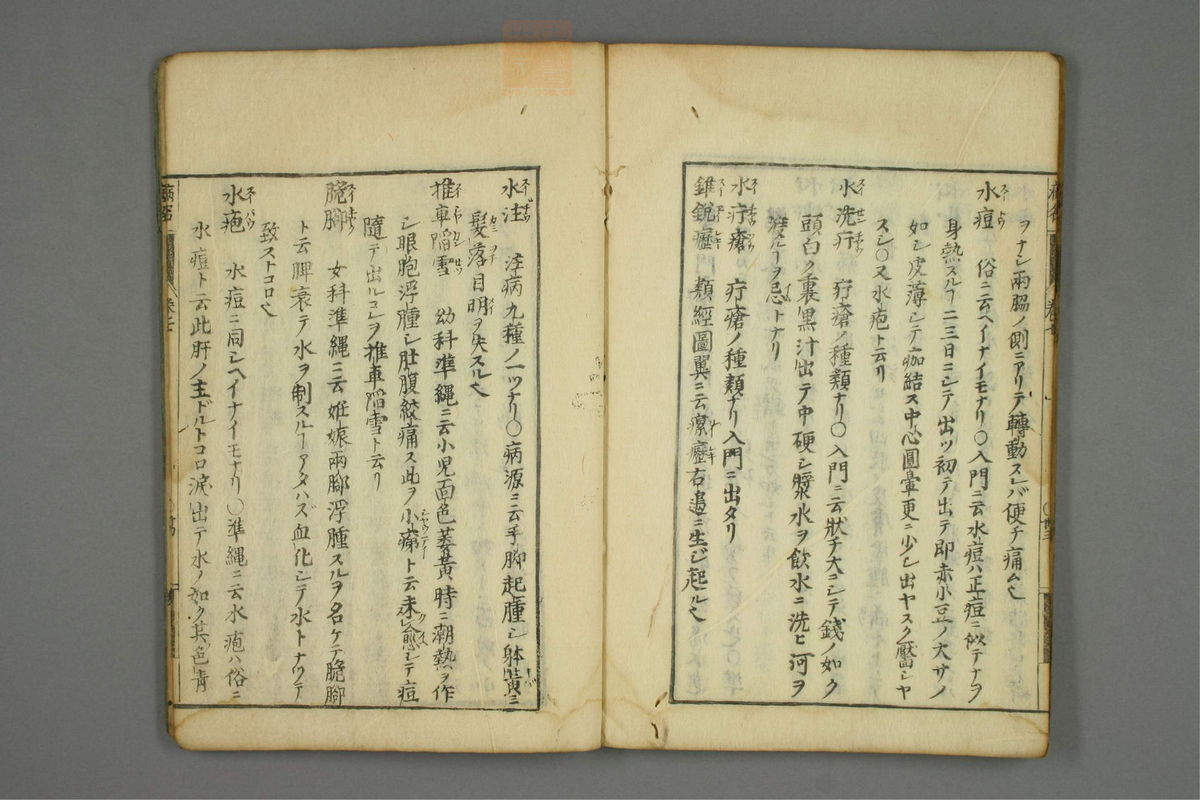 ヲナシ兩脇ノ側ニアリテ轉動スレバ便チ痛ムヽ
水痘 俗ニ云ヘイナイモナリ〇入門ニ云水痘ハ正痘ニ似テナヲ
身熱スルヿ二三日ニシテ出ツ初テ出テ即赤小豆ノ大サノ
如シ皮薄シテ痂結ス中心圓暈更ニ少シ出ヤスク靨シヤ
スシ〇又水疱ト云リ
水洗疔 疔瘡ノ種類ナリ〇入門ニ云狀チ大ニシテ錢ノ如ク
頭白ク裏黑汁出テ中硬シ漿水ヲ飲水ニ洗ヒ河ヲ
渡ルヿヲ忌トナリ
水疔瘡 疔瘡ノ種類ナリ入門ニ出タリ
錐銳癧 類經圖翼ニ云瘰癧右邊ニ生ジ起ルヽ
水注 疰病九種ノ一ツナリ〇病源ニ云手脚起腫シ躰黄ニ
髮落目明ヲ失スルヽ
推車陷雪 幼科準繩ニ云小児面色萎黃時ニ潮熱ヲ作
シ眼胞浮腫シ肚腹絞痛ス此ヲ小癇ト云未愈シテ痘
隨テ出ルコレヲ推車陷雪ト云リ
脆脚 女科準繩ニ云姙娠兩脚浮腫スルヲ名ケテ脆脚
ト云脾衰テ水ヲ制スルヿアタハズ血化シテ水トナツテ
致ストコロヽ
水疱 水痘ニ同シヘイナイモナリ〇準繩ニ云水疱ハ俗ニ
水痘ト云此肝ノ主ドルトコロ淚出テ水ノ如ク其色青